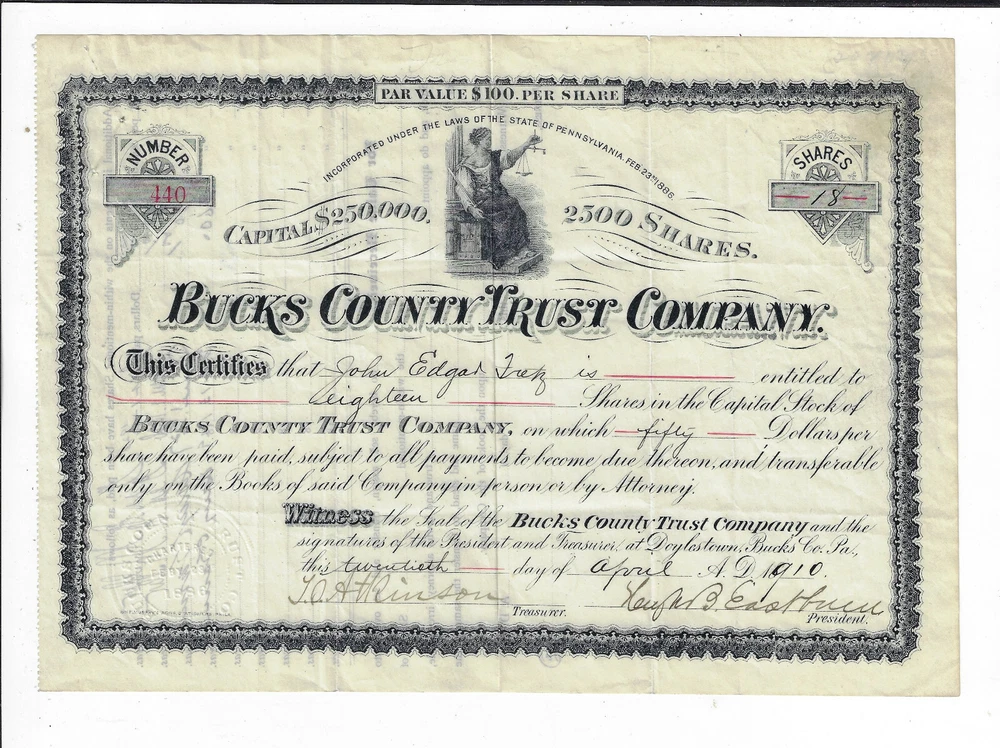 PAR VALUE $100. PER SHARE
INCORPORATED UNDER THE LAWS OF THE STATE OF PENNSYLVANIA, FEB. 23RD 1886.
NUMBER
440
SHARES
18
CAPITAL $250,000.
2500 SHARES.
BUCKS COUNTY TRUST COMPANY.
This Certifies that John Edgar is entitled to
eighteen Shares in the Capital Stock of
BUCKS COUNTY TRUST COMPANY, on which fifty Dollars per
share have been paid, subject to all payments to become due thereon, and transferable
only on the Books of said Company in person or by Attorney.
Witness the Seal of the Bucks County Trust Company and the
signatures of the President and Treasurer, at Doylestown, Bucks Co. Pa.,
this twentieth day of April A.D. 1910.
T. O. Atkinson
Treasurer.
Hugh B. Eastburn
President.